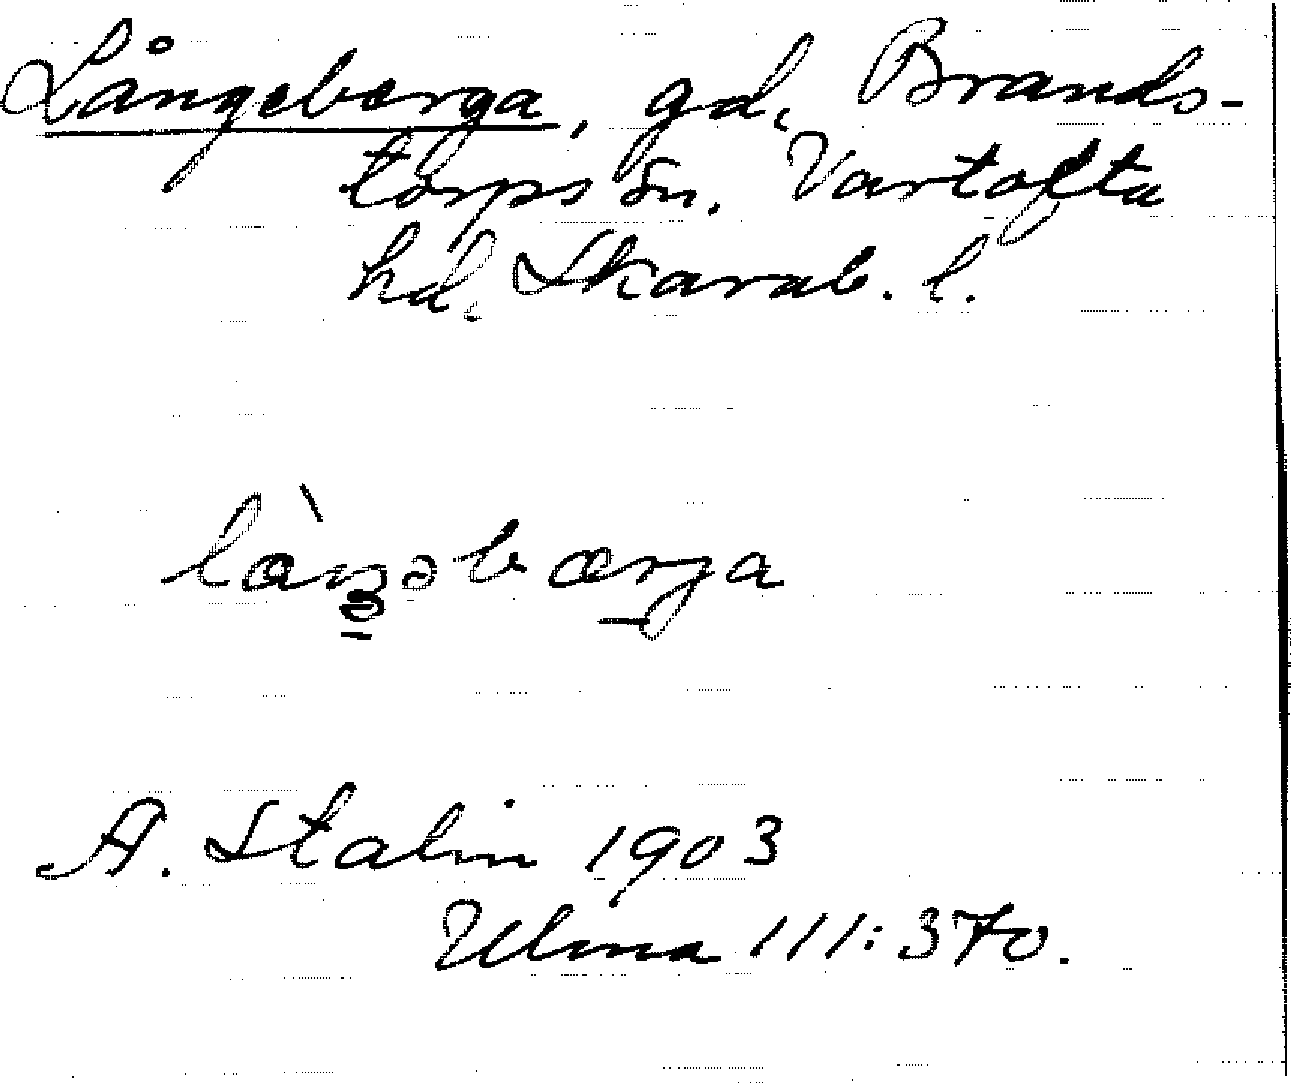 Långeberga, gd, Brands-
torps sn. Vartofta
hd. Skarab. l.
A. Stalin 1903
Ulma 111:370.